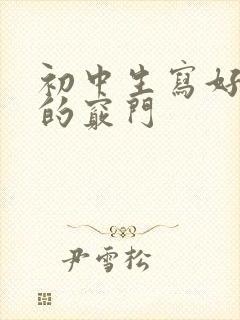 初中生寫好
的竅門
尹雪松